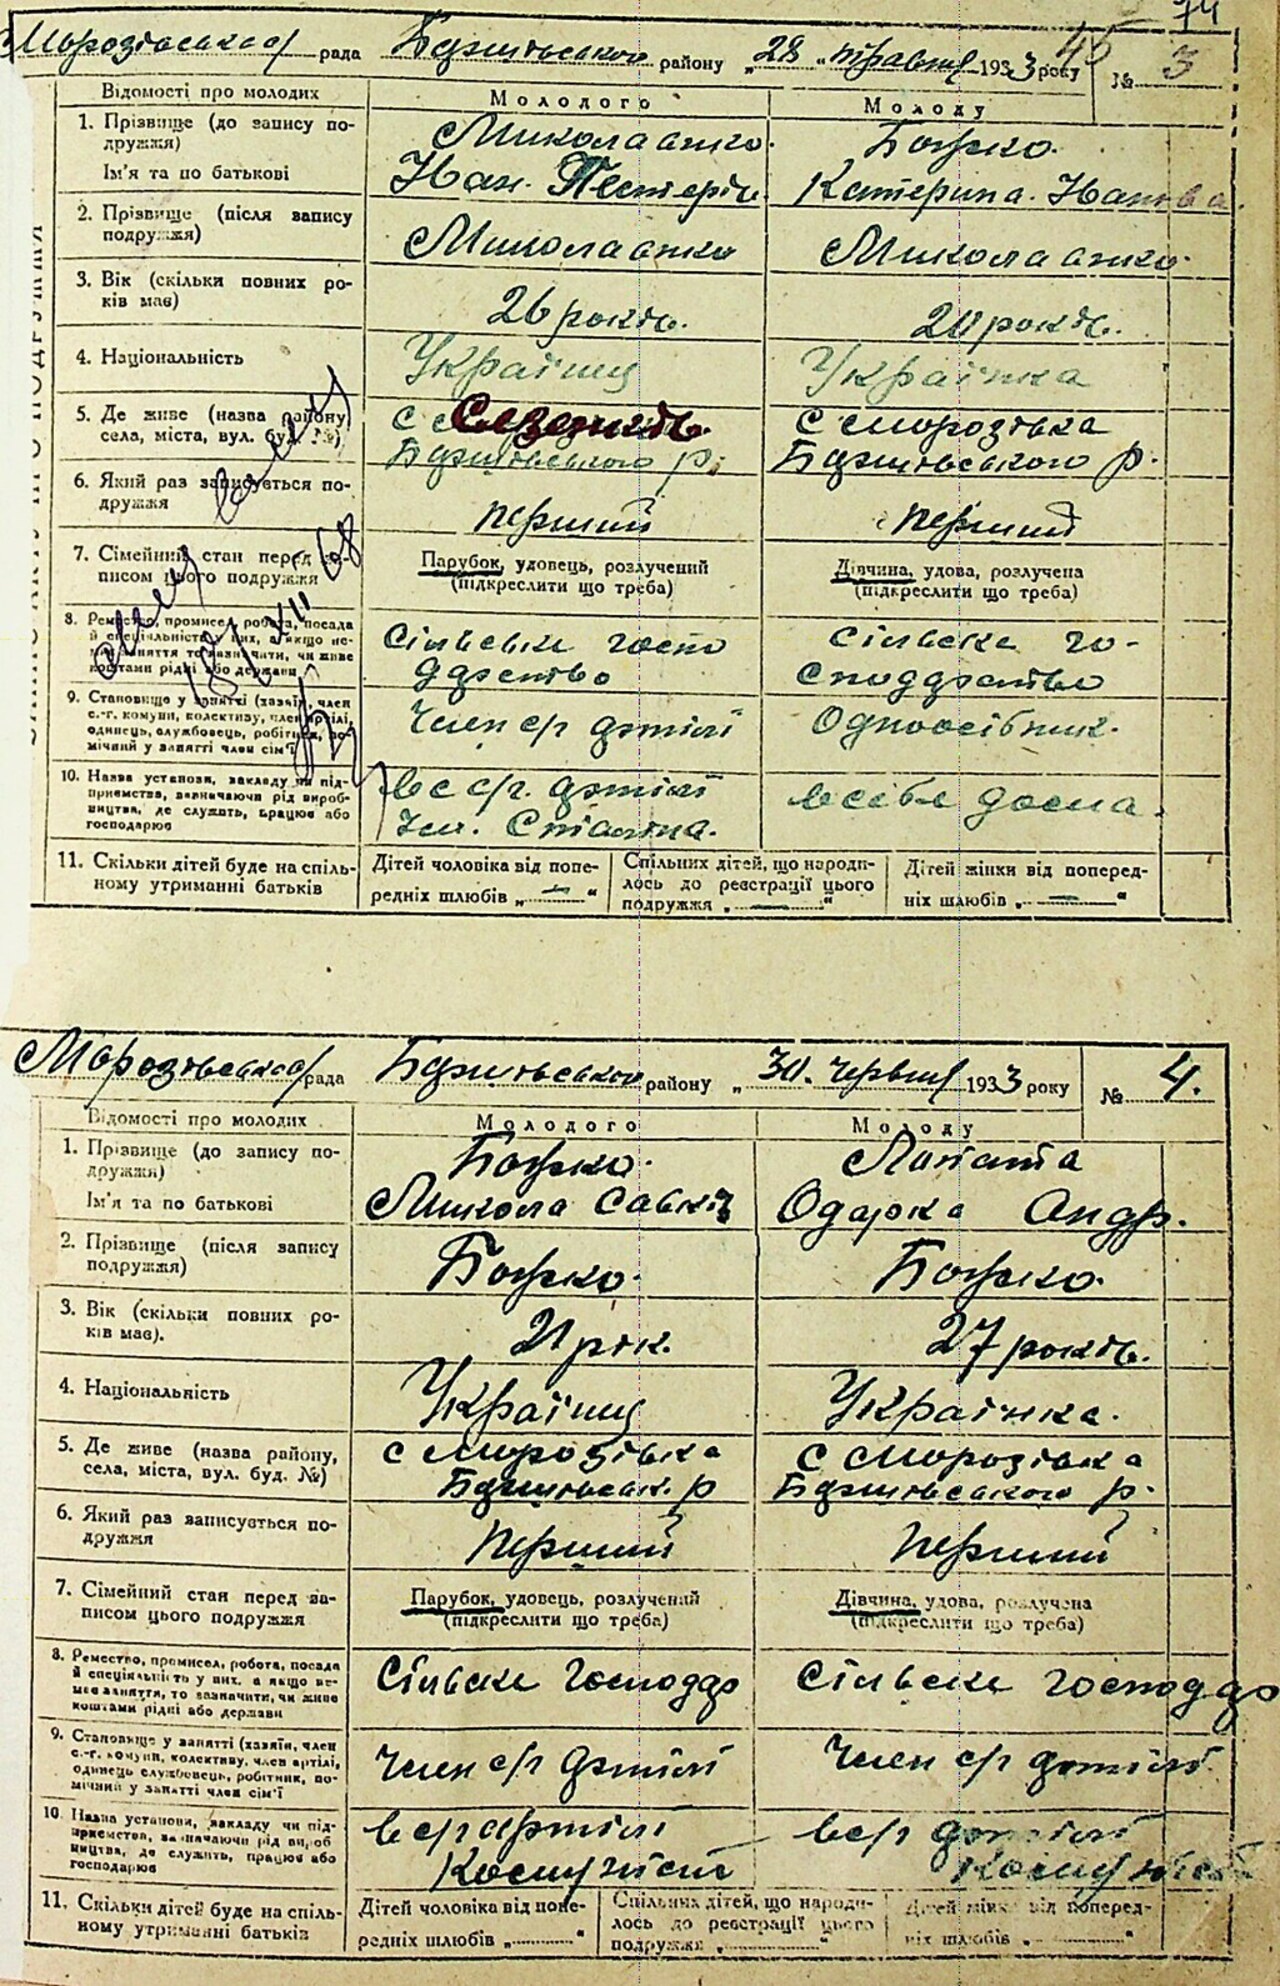 74
45
Морозівська рада Баришівського району „28“ травня 1933 року № 3
Відомості про молодих
Молодого
Молоду
1. Прізвище (до запису по-
дружжя)
Ім'я та по батькові
Миколаєнко.
Іван.
Божко.
Катерина. Іванівна.
2. Прізвище (після запису
подружжя)
Миколаєнко
Миколаєнко.
3. Вік (скільки повних ро-
ків має)
26 років.
20 років.
4. Національність
Українец
Українка
5. Де живе (назва району,
села, міста, вул. буд. №)
с
Баришівського р.
с Морозівка
Баришівського р.
6. Який раз записується по-
дружжя
перший
перший
7. Сімейний стан перед за-
писом цього подружжя
Парубок, удовець, розлучений
(підкреслити що треба)
Дівчина, удова, розлучена
(підкреслити що треба)
8. Ремество, промисел, робота, посада
й спеціяльність у них, а якщо не-
має заняття то зазначити, чи живе
коштами рідні або держави
Сільське госпо
дарство
Сільське го-
сподарство
9. Становище у занятті (хазяїн, член
с.-г. комуни, колективу, член артілі,
одинець, службовець, робітник, по-
мічний у занятті член сім'ї
Член с/г артілі
Одноосібник.
10. Назва установи, закладу чи під-
приємства, зазначаючи рід вироб-
ництва, де служить, працює або
господарює
в с/г. артілі
Ім. Сталіна.
в себе дома.
11. Скільки дітей буде на спіль-
ному утриманні батьків
Дітей чоловіка від попе-
редніх шлюбів „—“
Спільних дітей, що народи-
лось до реєстрації цього
подружжя „—“
Дітей жінки від поперед-
ніх шлюбів „—“
Морозівська рада Баришівського району „30. червня 1933 року № 4.
Відомості про молодих
Молодого
Молоду
1. Прізвище (до запису по-
дружжя)
Ім'я та по батькові
Божко.
Микола Савич
Лопата
Одарка Андр.
2. Прізвище (після запису
подружжя)
Божко.
Божко.
3. Вік (скільки повних ро-
ків має).
21 рік.
27 років.
4. Національність
Українец
Українка.
5. Де живе (назва району,
села, міста, вул. буд. №)
с Морозівка
Баришівськ. р
с Морозівка
Баришівського р.
6. Який раз записується по-
дружжя
Перший
Перший
7. Сімейний стан перед за-
писом цього подружжя
Парубок, удовець, розлучений
(підкреслити що треба)
Дівчина, удова, розлучена
(підкреслити що треба)
8. Ремество, промисел, робота, посада
й спеціяльність у них. а якщо не-
має заняття, то зазначити, чи живе
коштами рідні або держави
Сільське господар
Сільське господар
9. Становище у занятті (хазяїн, член
с.-г. комуни, колективу, член артілі,
одинець службовець, робітник, по-
мічний у занятті член сім'ї
Член с/г артілі
Член с/г артілі
10. Назва установи, закладу чи під-
приємства, зазначаючи рід вироб
ництва, де служить, працює або
господарює
в с/г артілі
Комуніст
в с/г артілі
Комуніст
11. Скільки дітей буде на спіль-
ному утриманні батьків
Дітей чоловіка від попе-
редніх шлюбів „“
Спільних дітей, що народи-
лось до реєстрації цього
подружжя „“
Дітей жінки від поперед-
ніх шлюбів „“